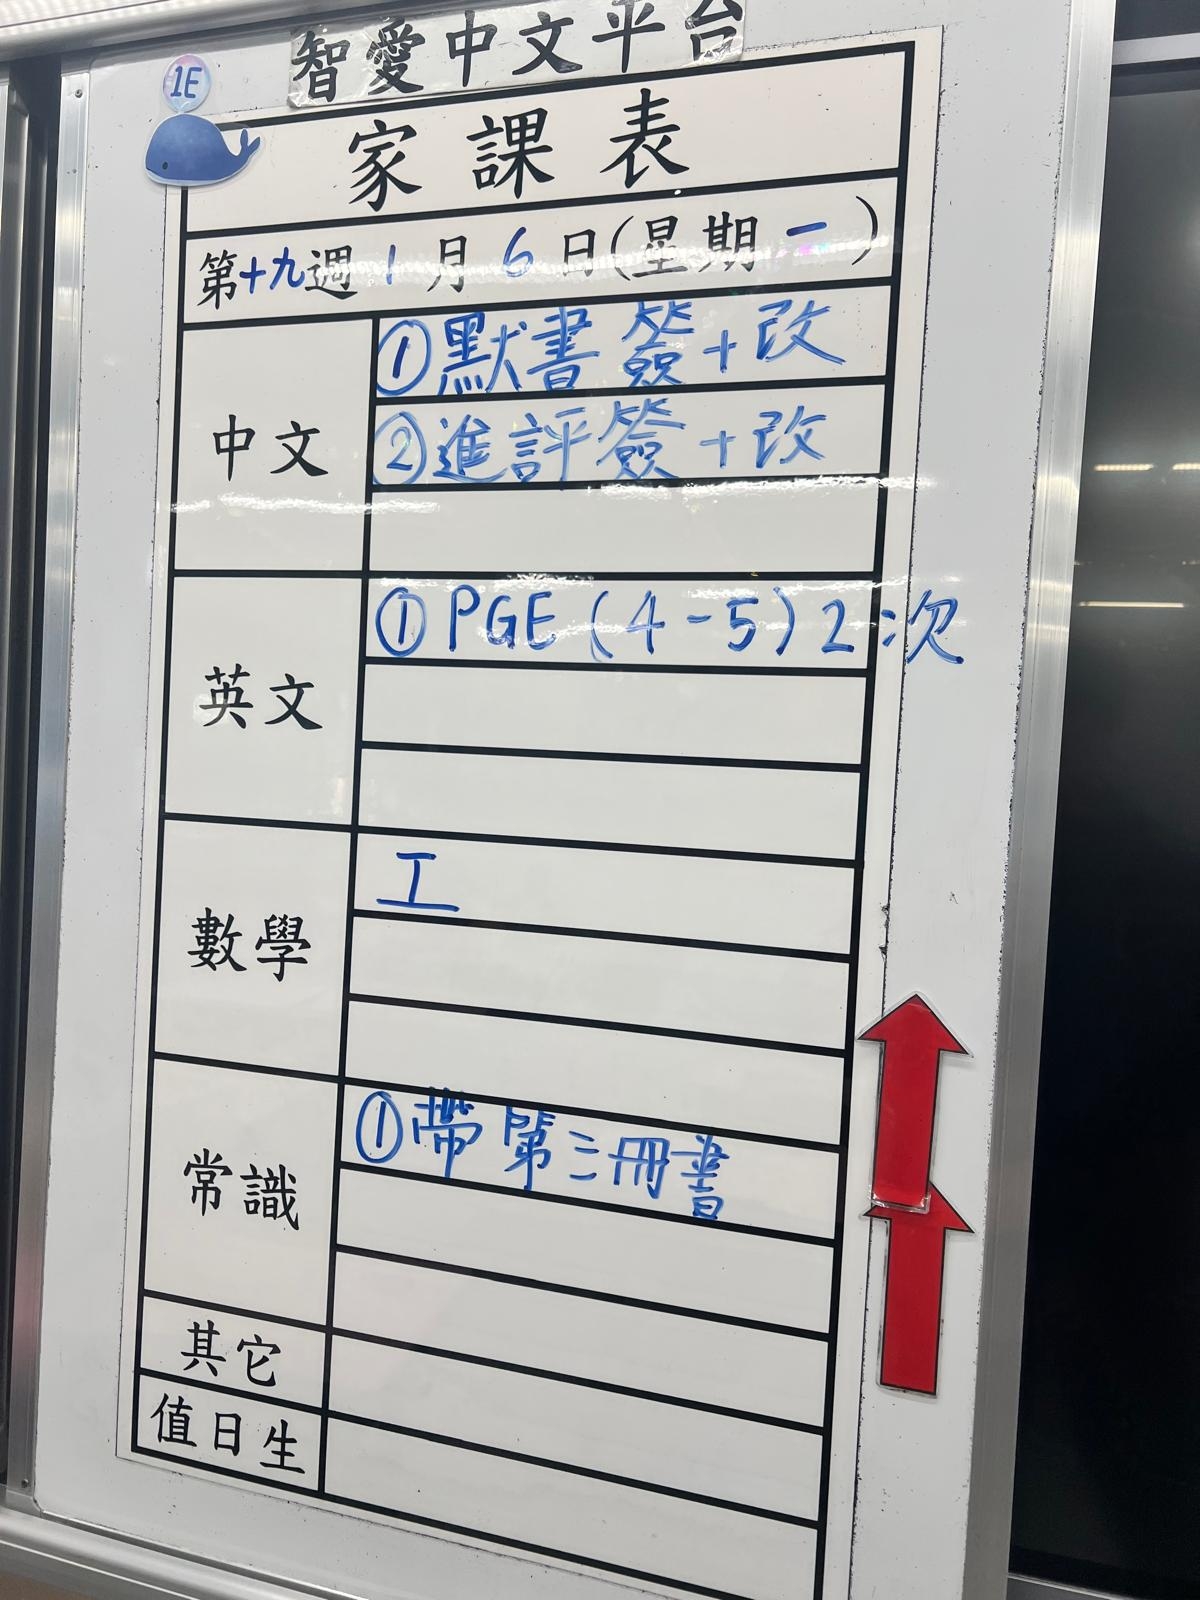 智愛中文平台
1E
家課表
第十九週 1 月 6 日(星期一)
中文
①默書簽+改
②進評簽+改
英文
①PGE (4-5) 2次
數學
工
常識
①帶第三冊書
其它
值日生